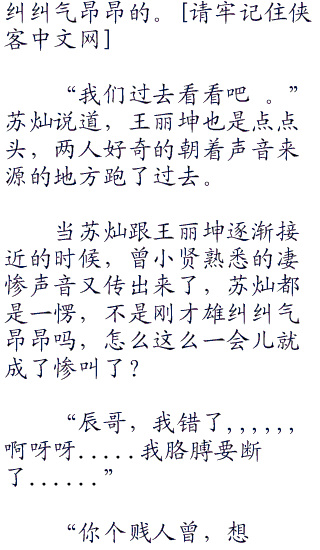 纠纠气昂昂的。[请牢记住侠
客中文网]
“我们过去看看吧 。”
苏灿说道，王丽坤也是点点
头，两人好奇的朝着声音来
源的地方跑了过去。
当苏灿跟王丽坤逐渐接
近的时候，曾小贤熟悉的凄
惨声音又传出来了，苏灿都
是一愣，不是刚才雄纠纠气
昂昂吗，怎么这么一会儿就
成了惨叫了？
“辰哥，我错了,,,,,,
啊呀呀.....我胳膊要断
了......”
“你个贱人曾，想